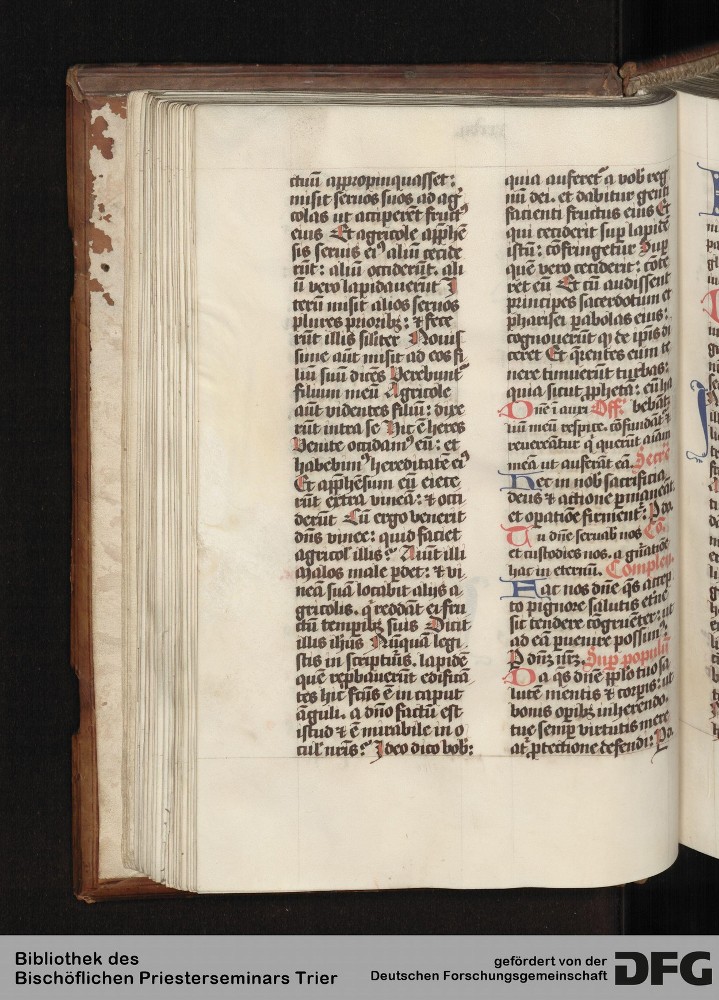 ctuū appropinquasset:
misit seruos suos ad agͥ
colas ut acciperēt fructꝰ
eius Et agricole apphē
sis seruis eiꝰ aliū cecide
rūt: aliū occiderūt. ali
ū vero lapidauerūt I
terū misit alios seruos
plures prioribꝫ: ⁊ fece
rūt illis siliter Nouis
sime aūt misit ad eos fi
liū suū dicēs Verebunt᷑
filium meū Agricole
aūt videntes filiū: dixe
rūt intra se Hic ē heres
Venite occidamꝰ eū: et
habebimꝰ hereditatē eiꝰ
Et apphēsum eū eiece
rūt extra vineā: ⁊ occi
derūt Cū ergo venerit
dn̄s vinee: quid faciet
agricol' illis? Aiūt illi
Malos male ꝑdet: ⁊ vi
neā suā locabit alijs a
gricolis. qͥ reddāt ei fru
ctū temporibꝫ suis Dicit
illis ihūs Nūquā legi
stis in scripturis. lapidē
quē reprobauerūt edificā
tes hic fcūs ē in caput
āguli. a dn̄o factū est
istud ⁊ ē mirabile in o
cul' nr̄is? Ideo dico vob:
quia auferet᷑ a vob reg
nū dei. et dabitur genti
facienti fructus eius Et
qui ceciderit sup lapidē
istū: cōfringetur Sup
quē vero ceciderit: cōte
ret eū Et cū audissent
principes sacerdotum et
pharisei ꝑabolas eius:
cognouerūt ꝙ de ip̄is di
ceret Et querentes eum te
nere timuerūt turbas:
quia sicut ꝓpheta: eū ha
Dn̄e ī auxi Off. bebāt
iū meū respice. cōfundāt᷑ ⁊
reuereātur qͥ querūt aīam
meā ut auferāt eā. Secrē
Hec in nob sacrificia
deus ⁊ actione ꝑmaneāt
et opatiōe firment᷑: P do.
Tu dn̄e seruab nos Cō.
et custodies nos. a gn̄atiōe
hac in eternū. Complen.
Hac nos dn̄e qs accep
to pignore salutis et'ne
sic tendere cōgruēter: ut
ad eā puenire possimꝰ.
P dn̄ꝫ nr̄ꝫ. Sup populū
Da qs dn̄e pplo tuo sa
lutē mentis ⁊ corpis: ut
bonis opibꝫ inherendo.
tue semp virtutis mere
at᷑ ꝓtectione defendi: Po.
Bibliothek des
Bischöflichen Priesterseminars Trier
gefördert von der
Deutschen Forschungsgemeinschaft
DFG